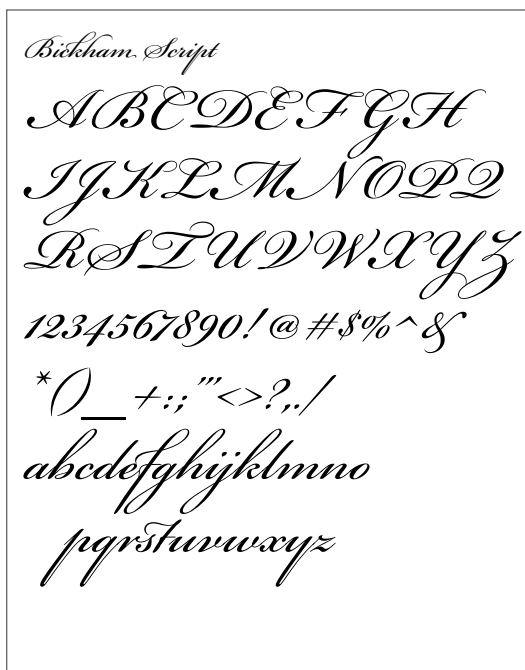 Bickham Script
ABCDEFGH
IJKLMNOPQ
RSTUVWXYZ
1234567890!@#$%^&
*()__+:;"'<>?,./
abcdefghijklmno
pqrstuvwxyz